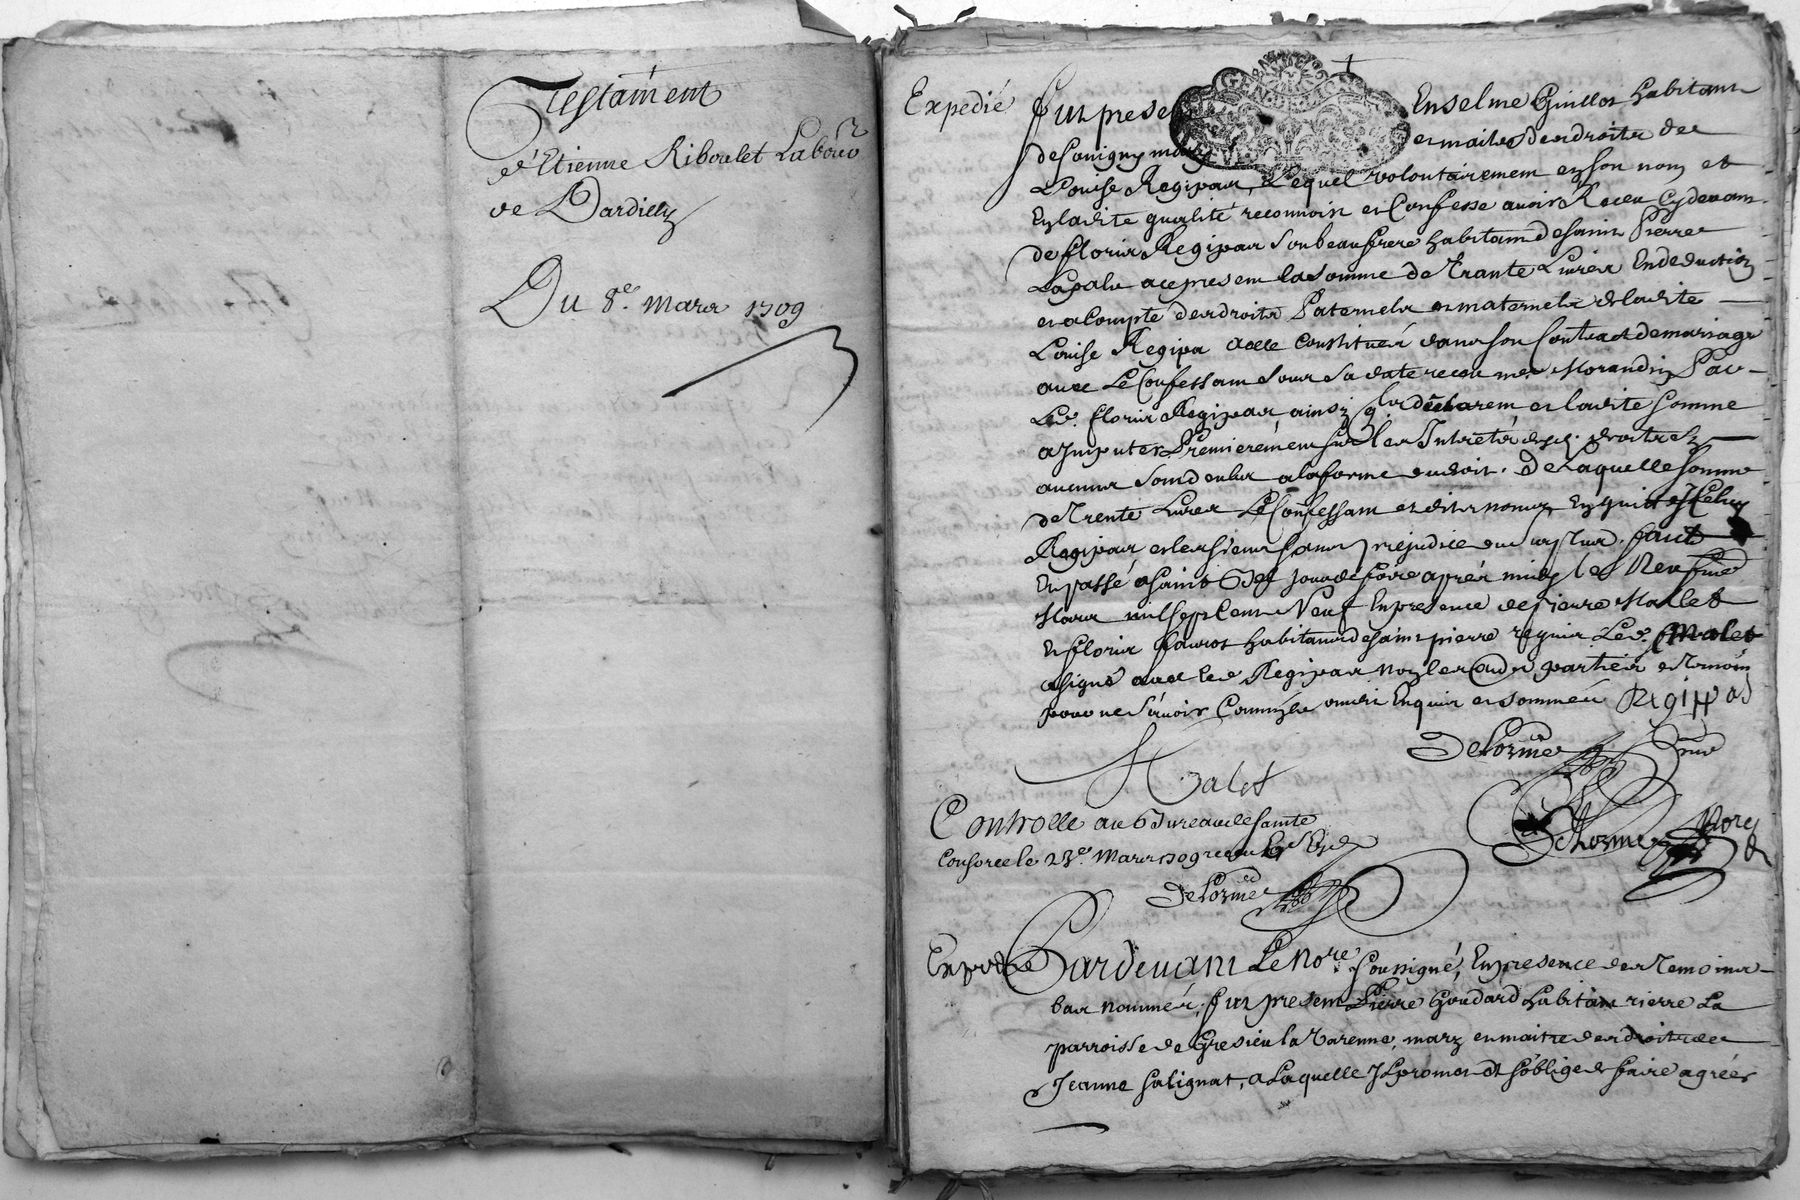 Testament
d'Etienne Riboulet Labour
de Dardilly
Du 8e. Mars 1709
Expedié
fut present Enselme Guillot habitant
de Savigny mary et maitre des droits de
Louise Regipas, Lequel volontairement en son nom et
En ladite qualité reconnoit et Confesse avoir Receu Cy devant
de floris Regipas Son beaufrere habitant de saint Pierre
Lapalu acepresent la Somme de Trante Livres En deduction
et aCompte des droits Paternels et maternels de ladite
Louise Regipa a elle Constitués dans son Contract de mariage
avec Le Confessant Sous Sa date receu me. Morandin Par
Led. floris Regipas ainsy declarent et ladite Somme
a Imputer Premierement sur les Interets droits
a la forme du droit. De Laquelle Somme
de Trente Livres Le Confessant esdits noms En quitte
Regipas, et les siens sans prejudice du surplus. fait
En passé a saint Bel jour de foire aprés midy le
Mars mil sept Cent Neuf En presence de pierre Mallet
Et floris habitants de saint pierre requis Led. Malet
a signé avec led. Regipas non les autres parties et Temoin
pour ne Sçavoir Comm'ils ont dit Enquis et sommés Regipas
Delorme
Malet
Controlle au Bureau de Sainte
Consorce le 23e. Mars 1709 receu
Delorme
Delorme Nore
Expedié
Pardevant Le Nore. Soussigné, En presence des Temoins
bas nommés, fut present Pierre Goudard habitant rierre La
parroisse de Gresieu la Varenne, mary et maitre des droits de
Jeanne Salignat, a Laquelle Il promet et s'oblige de faire agréer